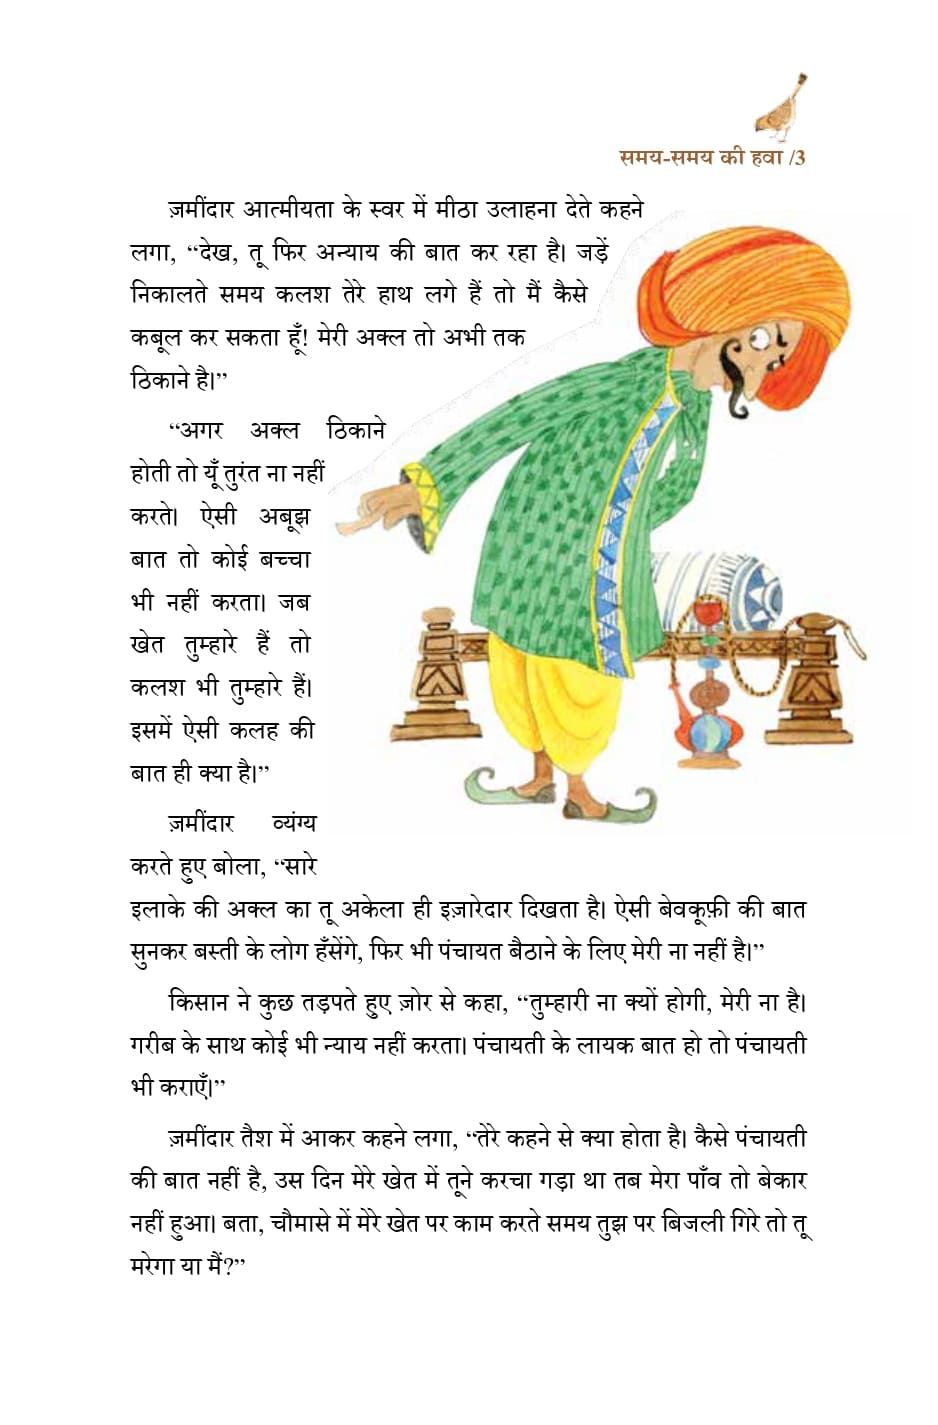 समय-समय की हवा /3
ज़मींदार आत्मीयता के स्वर में मीठा उलाहना देते कहने
लगा, “देख, तू फिर अन्याय की बात कर रहा है। जड़ें
निकालते समय कलश तेरे हाथ लगे हैं तो मैं कैसे
कबूल कर सकता हूँ! मेरी अक्ल तो अभी तक
ठिकाने है।”
“अगर अक्ल ठिकाने
होती तो यूँ तुरंत ना नहीं
करते। ऐसी अबूझ
बात तो कोई बच्चा
भी नहीं करता। जब
खेत तुम्हारे हैं तो
कलश भी तुम्हारे हैं।
इसमें ऐसी कलह की
बात ही क्या है।”
ज़मींदार व्यंग्य
करते हुए बोला, “सारे
इलाके की अक्ल का तू अकेला ही इज़ारेदार दिखता है। ऐसी बेवकूफ़ी की बात
सुनकर बस्ती के लोग हँसेंगे, फिर भी पंचायत बैठाने के लिए मेरी ना नहीं है।”
किसान ने कुछ तड़पते हुए ज़ोर से कहा, “तुम्हारी ना क्यों होगी, मेरी ना है।
गरीब के साथ कोई भी न्याय नहीं करता। पंचायती के लायक बात हो तो पंचायती
भी कराएँ।”
ज़मींदार तैश में आकर कहने लगा, “तेरे कहने से क्या होता है। कैसे पंचायती
की बात नहीं है, उस दिन मेरे खेत में तूने करचा गड़ा था तब मेरा पाँव तो बेकार
नहीं हुआ। बता, चौमासे में मेरे खेत पर काम करते समय तुझ पर बिजली गिरे तो तू
मरेगा या मैं?”